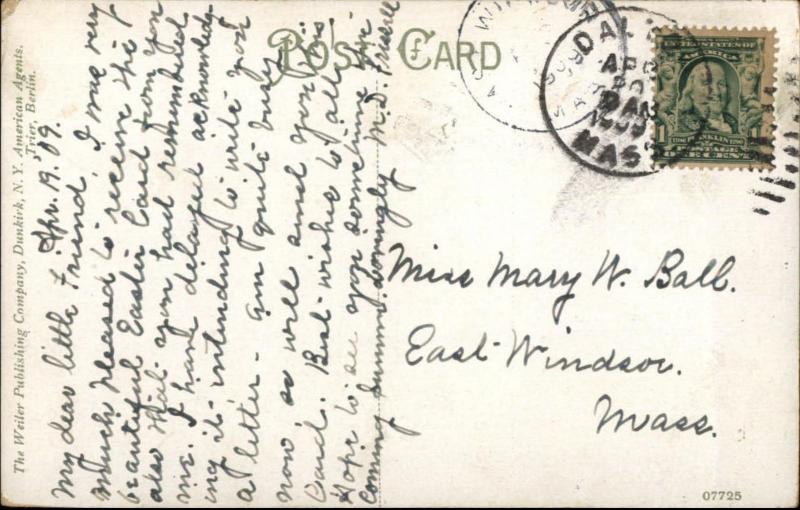 The Weiler Publishing Company, Dunkirk, N. Y. American Agents.
Trier, Berlin.
POST CARD
Apr. 19. 09.
My dear little Friend, I was very
much pleased to receive the
beautiful Easter Card from you
also that you had remembered
me. I have delayed acknowledg-
ing it- intending to write you
a letter - am quite busy
now so will send you this
Card. Best- wishes to all
Hope to see you sometime the
coming summer. Lovingly M. D.
DAL
APR
20
AM
1909
MASS
UNITED STATES OF
AMERICA
1 FRANKLIN 1
POSTAGE
ONE CENT
Miss Mary W. Ball.
East Windsor.
Mass.
07725